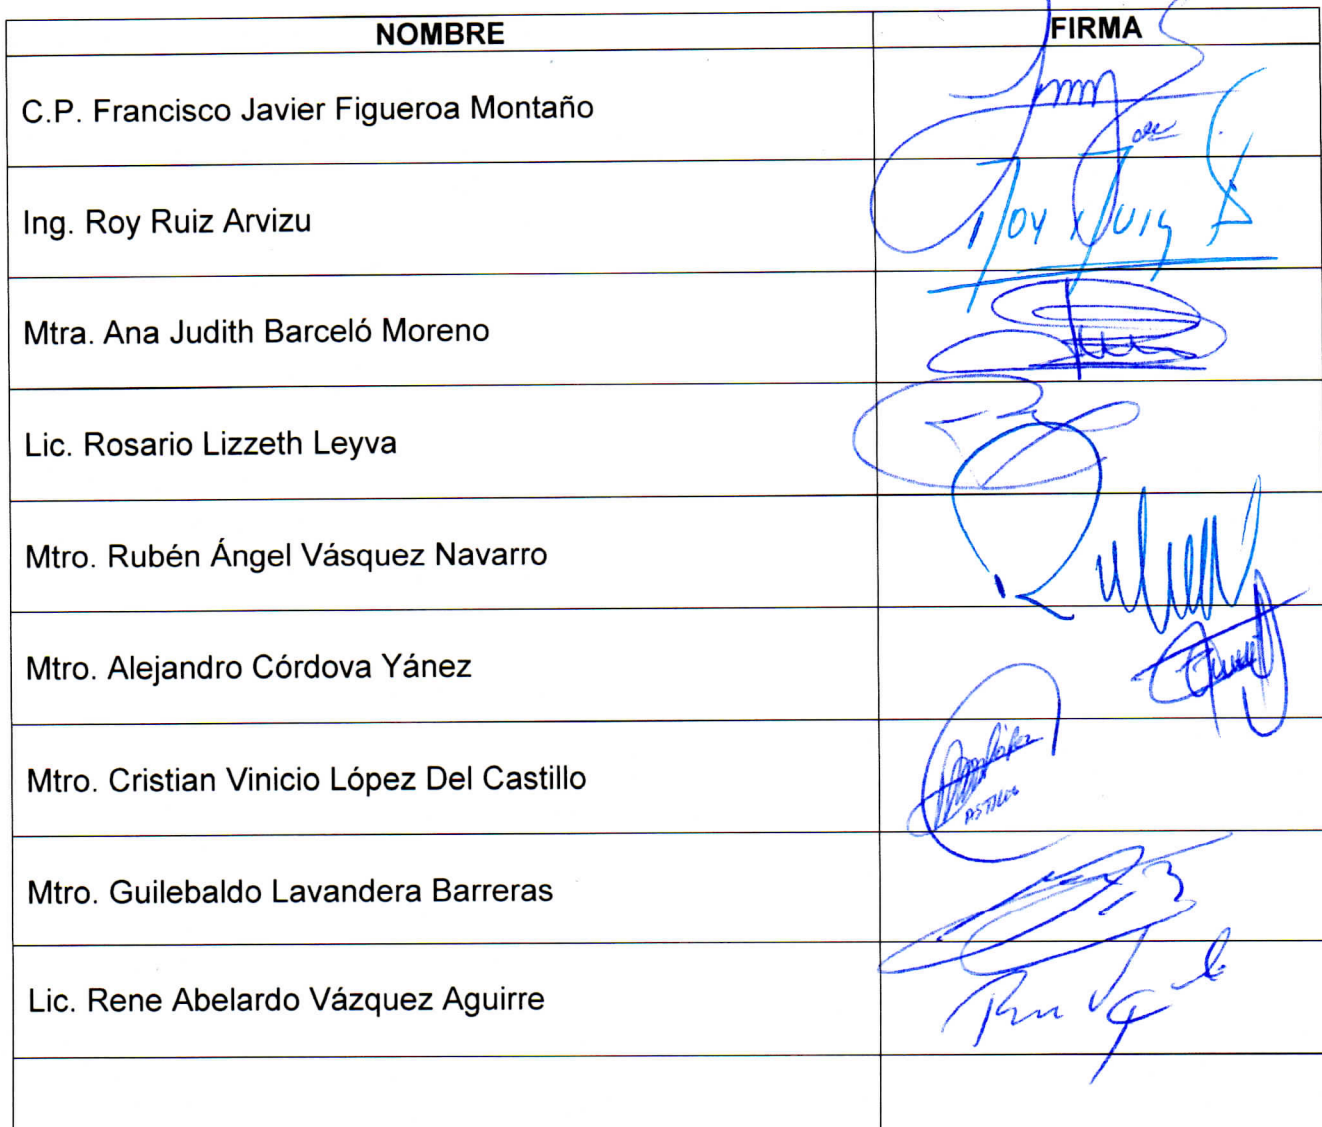 NOMBRE FIRMA
C.P. Francisco Javier Figueroa Montaño
Ing. Roy Ruiz Arvizu Roy Ruiz
Mtra. Ana Judith Barceló Moreno
Lic. Rosario Lizzeth Leyva
Mtro. Rubén Ángel Vásquez Navarro
Mtro. Alejandro Córdova Yánez
Mtro. Cristian Vinicio López Del Castillo López
Mtro. Guilebaldo Lavandera Barreras
Lic. Rene Abelardo Vázquez Aguirre